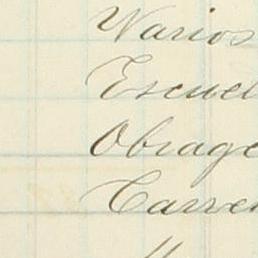 Varios
Escuel
Obrage
Carre
"